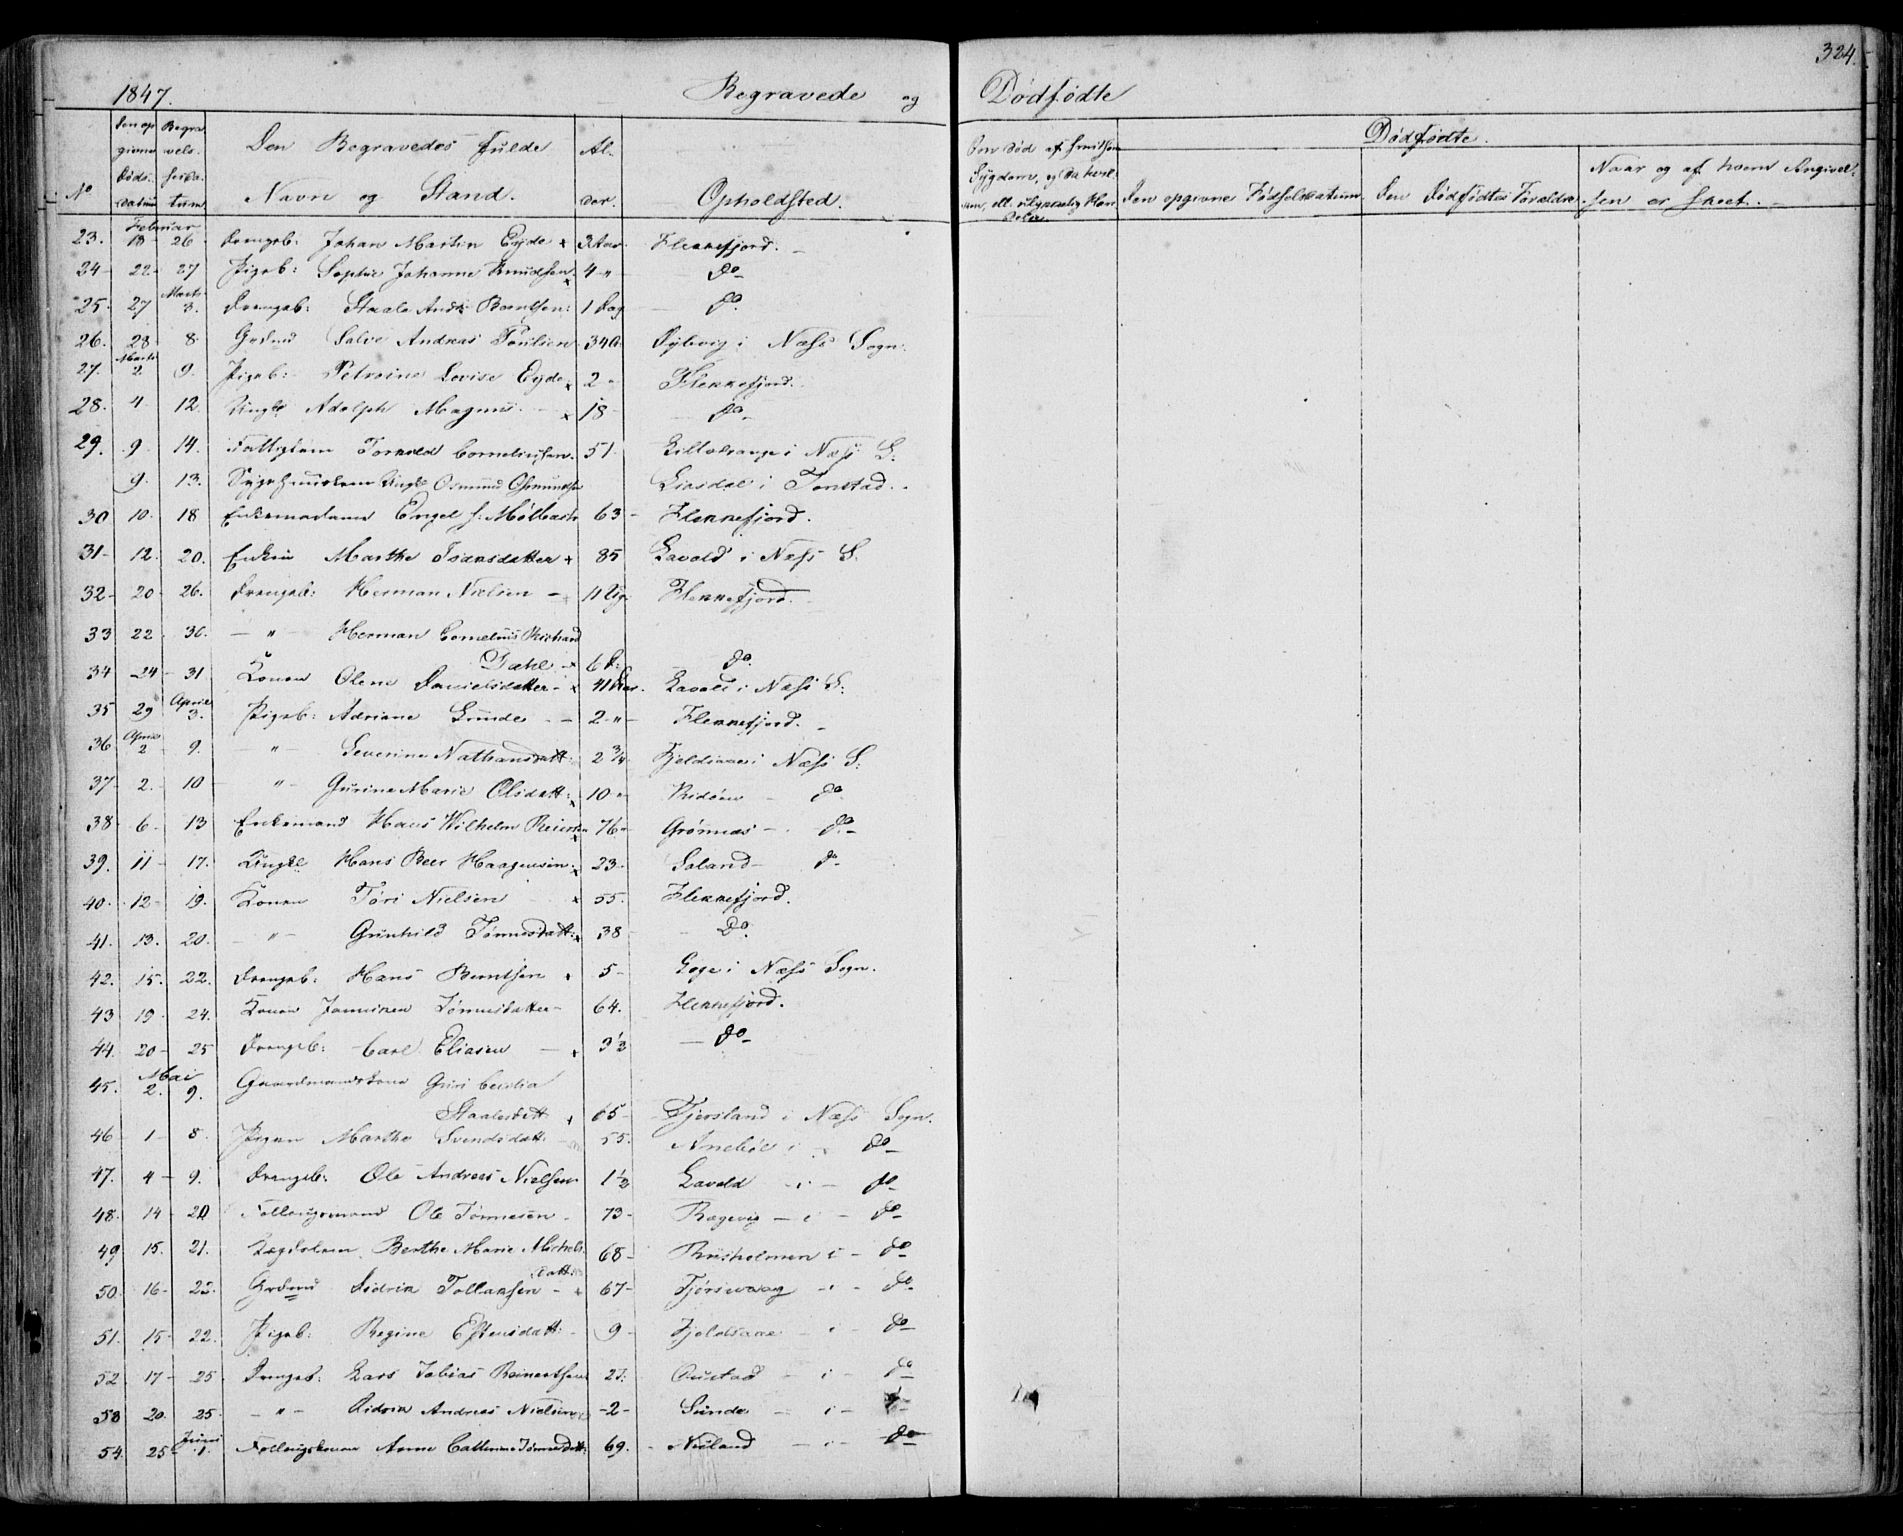 324.
1847. Begravede og Dødfødte
No
Den opgivne Dødsdatum
Begravelsesdatum
Den Begravedes fulde Navn og Stand.
Alder.
Opholdsted.
Om død af smitsom Sygdom,
Dødfødte.
Den opgivne Fødselsdatum
Den Dødfødtes Forældre
Naar og af hvem Angivelsen er skeet.
Februar
23. 18 26 Drengeb: Johan Martin Eyde x 3 Aar Flekkefjord.
24 22 27 Pigeb: Sophie Johanne Knudsen x 4 " do
Marts
25 27 3. Drengeb: Staale Andr Berntsen 1 Dag do
26. 28 8 Grdmd Salve Andreas Poulsen 34 A Dybvig i Næss Sogn.
Marts
27. 2 9. Pigeb: Petroine Lovise Eyde x 2 " Flekkefjord.
28. 4 12. Ungk Adolph Magnus x 18 do
29. 9 14. Fattiglem Torkild Corneliussen. 51 i Næss S:
9. 13. Ungk Osmund Osmundsen i Tonstad.
30 10. 18 Enkemadame Engel f: Mølbach 63 Flekkefjord.
31 12. 20. Enken Marthe Isaksdatter x 85 Lavold i Næss S.
32 20 26. Drengeb: Herman Nielsen 11 Ug. Flekkefjord.
33 22 30. " Herman Cornelius Richard
Dahl x 6 D: do
34 24 31 Konen Olene Danielsdatter x 41 Aar. Lavold i Næss S:
April
35 29 3. Pigeb: Adriane Grude 2 " Flekkefjord.
April
36 2 9. " Severine Nathansdatt: 2 3/4 Fjeldsaae i Næss S:
37 2. 10 " Gurine Marie Olsdatt: x 10 " Andøen do
38 6. 13 Enkemand Hans Wilhelm Reiersen 76 " Grønnes do
39. 11 17. Ungkl Hans Beer Haagensen x 23. Soland do
40. 12 19. Konen Tori Nielsen x 55. Flekkefjord.
41. 13. 20. " Gunhild Tønnesdatt: x 38 Do.
42. 15. 22. Drengeb: Hans Berntsen x 5 Loge i Næss Sogn.
43 19 24. Konen Janniken Tønnesdatter 64. Flekkefjord.
44. 20 25 Drengeb: Carl Eliasen x 3 1/2 do
Mai
45. 2. 9. Gaardmandskone Guri Cecilia
Staalesdatt x 65 Fjersland i Næss Sogn.
46 1 8. Pigen Marthe Svendsdatt 55. Anebøe i do
47. 4 9. Drengeb: Ole Andreas Nielsen 1 1/2 Lavold i do
48. 14 20 Follaugsmand Ole Tønnesen 73 Rægevig i do
49 15. 21. Lægdslem Berthe Marie Michels
datt: 68 Risholmen i do
50. 16 23. Grdmd Sidrik Tollaksen x 67 Tjørsvaag i do
51. 15 22. Pigeb: Regine Estensdatt: 9 Fjeldsaae i do
52 17 25 Drengeb: Lars Tobias Reinertsen 27. Oustad i do
53 20. 25. " Didrik Andreas Nielsen 2 Sunde i do
Juni
54. 25 1. Follaugskonen Anne Cathrine Tønnesdatt: 69. Nuland i do